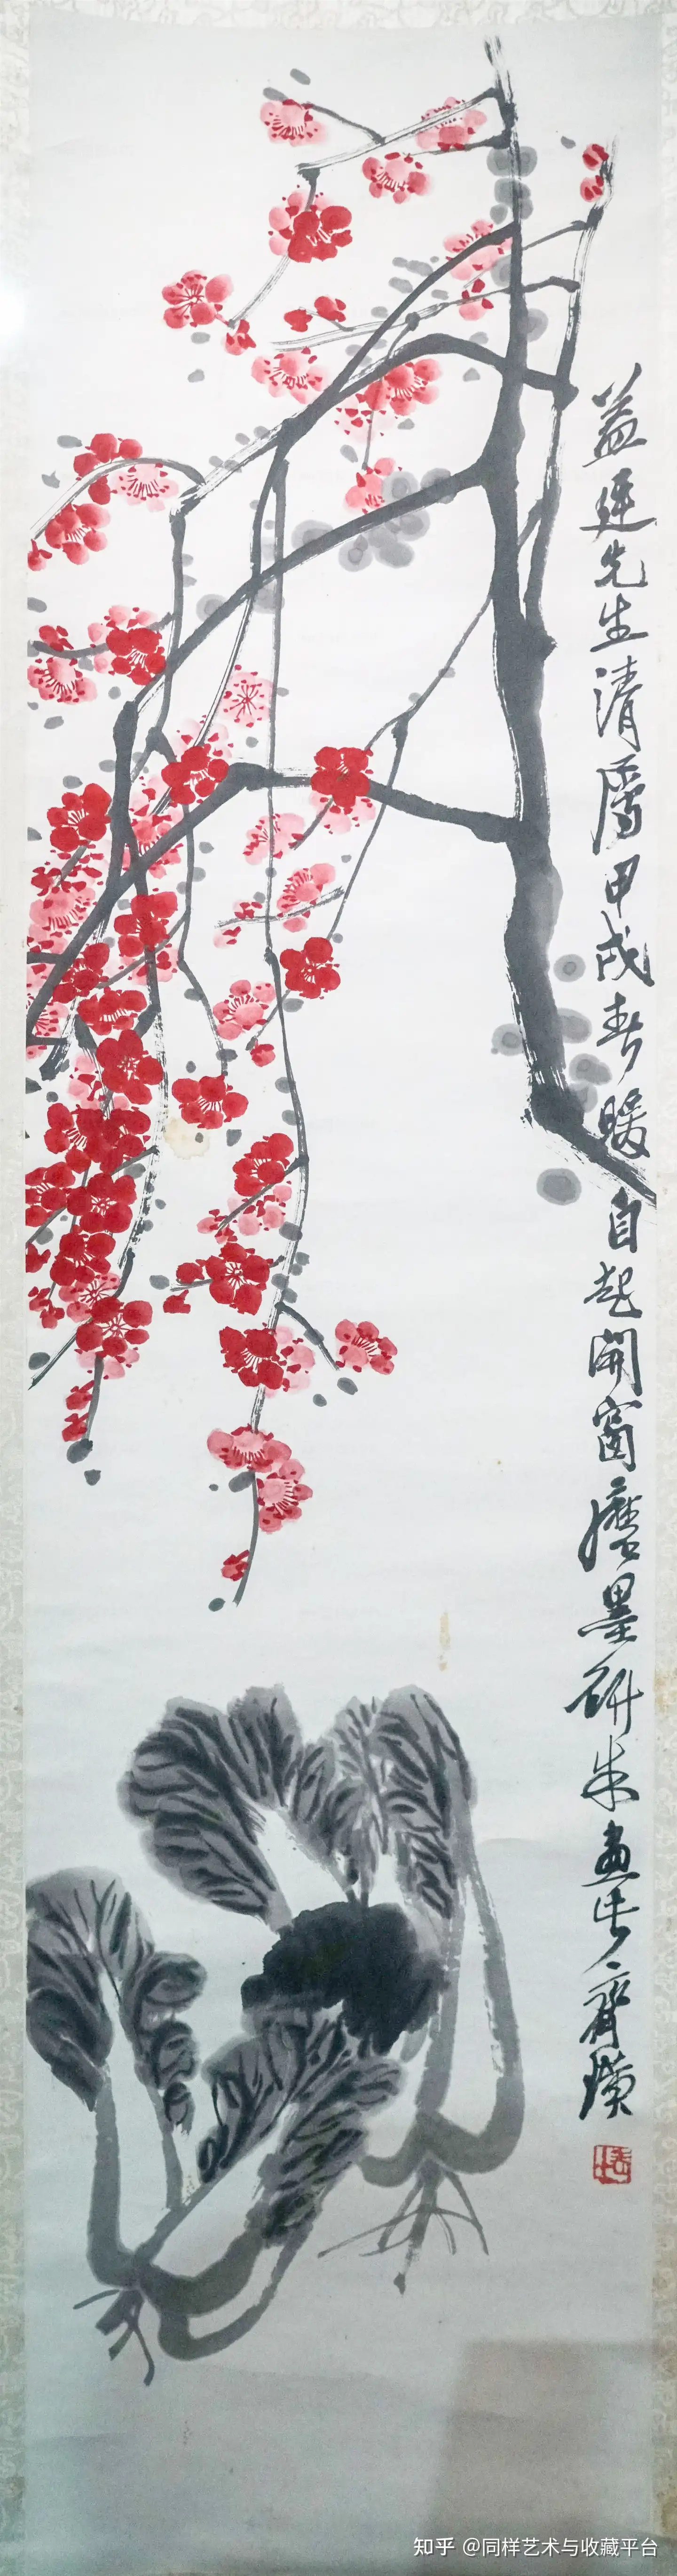 益先生清屬甲戌春暖自起開窗磨墨研朱畫此齊璜
知乎 @同样艺术与收藏平台